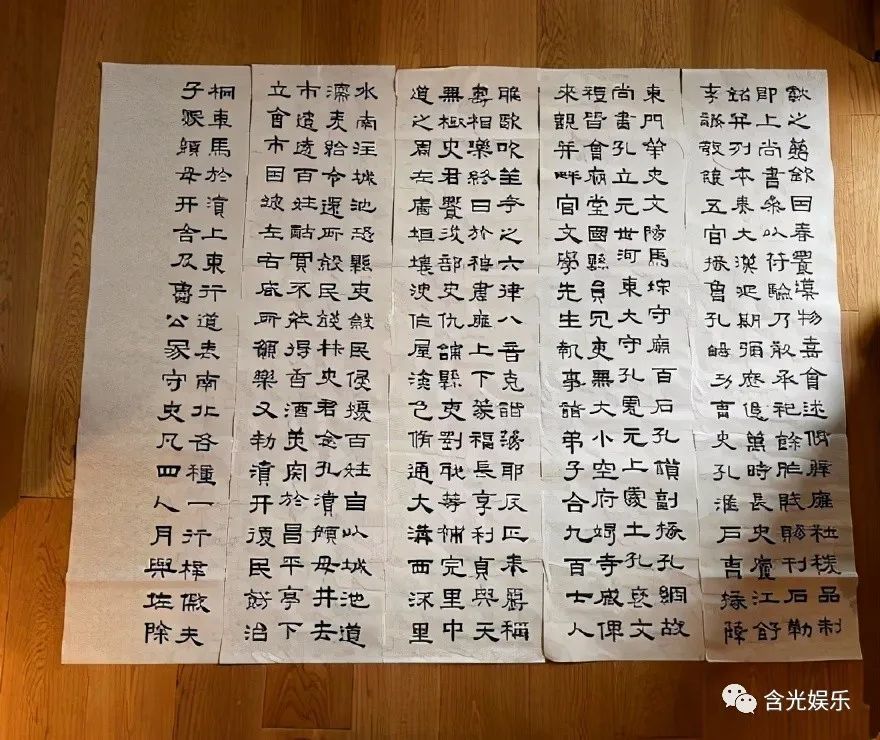 獻之薦欽因春饗導物嘉會述脩璧廱社稷品制
即上尚書參以符驗乃敢承祀餘胙賦賜刊石勒
銘并列本奏大漢延期彌歷億萬時長史廬江舒
李謙敬讓五官掾魯孔暢功曹史孔淮戶曹掾薛
東門榮史文陽馬琮守廟百石孔讚副掾孔綱故
尚書孔立元世河東大守孔彪元上處土孔褒文
禮皆會廟堂國縣員冗吏無大小空府竭寺咸俾
來觀并畔官文學先生執事諸弟子合九百七人
雅歌吹笙考之六律八音克諧蕩邪反正奉爵稱
壽相樂終日於穆肅雍上下蒙福長享利貞與天
無極史君饗後部史仇誧縣吏劉耽等補完里中
道之周左廧垣壞決作屋塗色脩通大溝西流里
水南注城池恐縣吏斂民侵擾百姓自以城池道
濡麥給令還所斂民錢材史君念孔瀆顏母井去
市遼遠百姓酤買不能得香酒美肉於昌平亭下
立會市因彼左右咸所願樂又敕瀆井復民餝治
桐車馬於瀆上東行道表南北各種一行梓假夫
子冢顏母井舍及魯公冢守吏凡四人月與佐除
含光娱乐